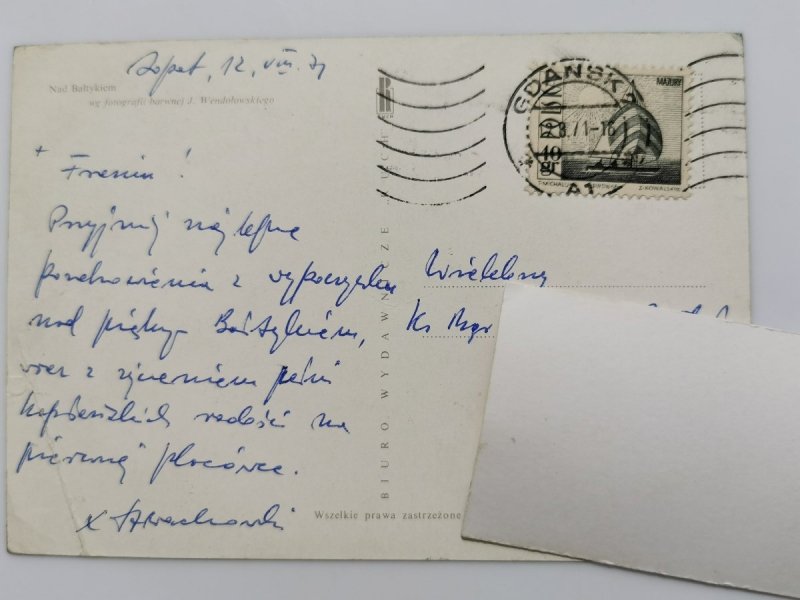 Sopot, 12. VIII. 71
Nad Bałtykiem
wg fotografii barwnej J. Wendołowskiego
+
Przyjmij najlepsze
pozdrowienia z wypoczynku
nad pięknym Bałtykiem,
wraz z życzeniem pełni
kapłańskich radości na
pierwszej placówce.
x
Wszelkie prawa zastrzeżone
BIURO WYDAWNICZE RUCH
Wielebny
Ks Mgr
GDAŃSK 2
12.8.71-16
A1
MAZURY
40 gr
Z. KOWALSKI